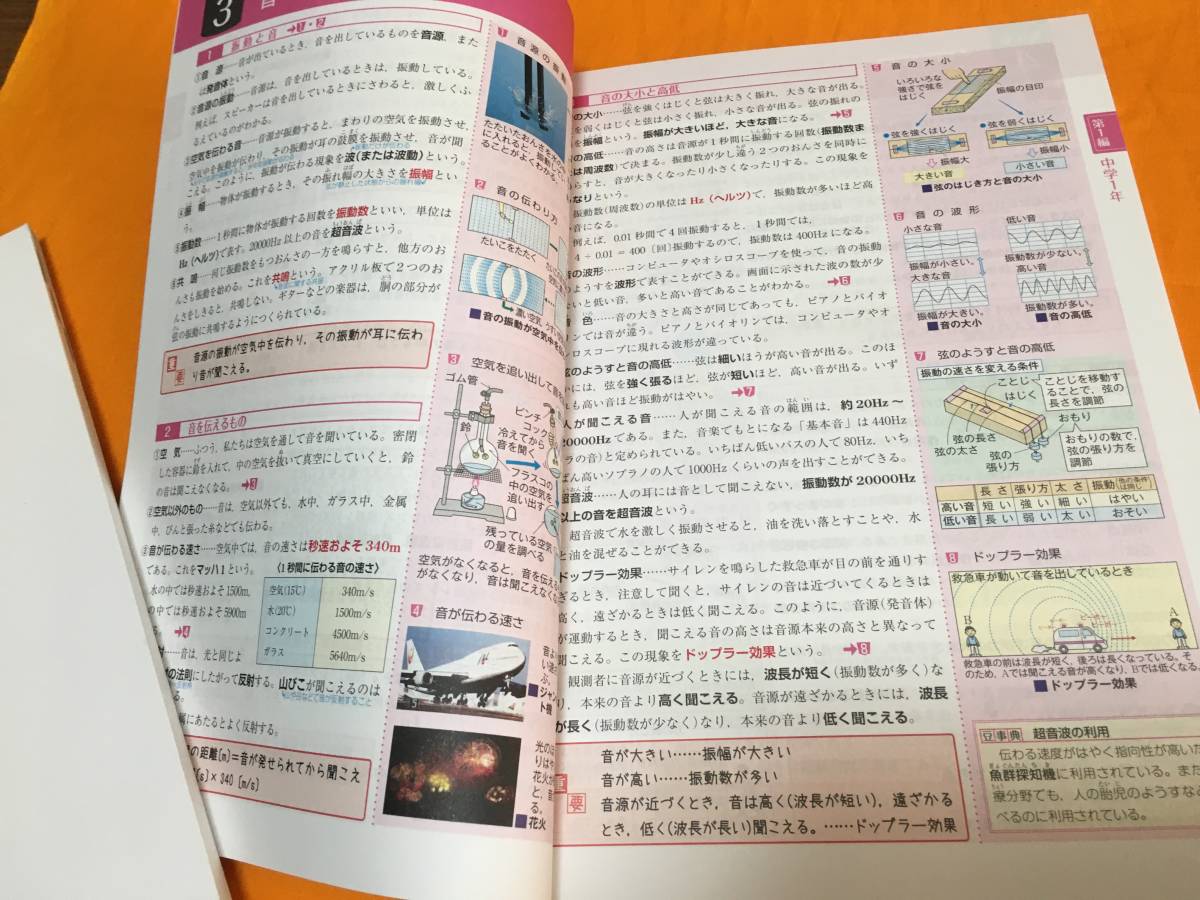 3
1 振動と音 →1・2
①音 源……音が出ているとき，音を出しているものを音源，また
は発音体という。
②音源の振動……音源は，音を出しているときは，振動している。
例えば，スピーカーは音を出しているときにさわると，激しくふ
るえているのがわかる。
③空気を伝わる音……音源が振動すると，まわりの空気を振動させ，
空気中を振動が伝わり，その振動が耳の鼓膜を振動させ，音が聞
こえる。このように，振動が伝わる現象を波(または波動)という。
④振 幅……物体が振動するとき，その振れ幅の大きさを振幅とい
う。
⑤振動数……1秒間に物体が振動する回数を振動数といい，単位は
Hz(ヘルツ)で表す。20000Hz以上の音を超音波という。
⑥共 鳴……同じ振動数をもつおんさの一方を鳴らすと，他方のお
んさも振動を始める。これを共鳴という。アクリル板で2つのお
んさをしきると，共鳴しない。ギターなどの楽器は，胴の部分が
弦の振動に共鳴するようにつくられている。
重要
音源の振動が空気中を伝わり，その振動が耳に伝わ
り音が聞こえる。
2 音を伝えるもの
①空 気……ふつう，私たちは空気を通して音を聞いている。密閉
した容器に鈴を入れて，中の空気を抜いて真空にしていくと，鈴
の音は聞こえなくなる。→3
②空気以外のもの……音は，空気以外でも，水中，ガラス中，金属
中，ぴんと張った糸などでも伝わる。
③音が伝わる速さ……空気中では，音の速さは秒速およそ340m
である。これをマッハ1という。
水の中では秒速およそ1500m，
の中では秒速およそ5900m
→4
〈1秒間に伝わる音の速さ〉
空気(15℃) 340m/s
水(20℃) 1500m/s
コンクリート 4500m/s
ガラス 5640m/s
……音は，光と同じよ
の法則にしたがって反射する。山びこが聞こえるのは
にあたるとよく反射する。
の距離(m)＝音が発せられてから聞こえ
(s)×340(m/s)
1 音源の振動
たたいたおんさを水の
に入れると，振動
ることがよくわかる。
2 音の伝わり方
たいこをたたく
濃い空気
■音の振動が空気中を
3 空気を追い出して
ゴム管
鈴
ピンチ
コック
冷えてから
音を聞く
フラスコの
中の空気を
追い出す
残っている空気
の量を調べる
空気がなくなると，音を伝える
がなくなり，音は聞こえなくな
4 音が伝わる速さ
■ジャン
ト機
■花火
音の大小と高低
の大小……弦を強くはじくと弦は大きく振れ，大きな音が出る。
を弱くはじくと弦は小さく振れ，小さな音が出る。弦の振れの
を振幅という。振幅が大きいほど，大きな音になる。→5
の高低……音の高さは音源が1秒間に振動する回数(振動数ま
は周波数)で決まる。振動数が少し違う2つのおんさを同時に
らすと，音が大きくなったり小さくなったりする。この現象を
なりという。
振動数(周波数)の単位はHz(ヘルツ)で，振動数が多いほど高
音になる。
例えば，0.01秒間で4回振動すると，1秒間では，
4÷0.01＝400〔回〕振動するので，振動数は400Hzになる。
音の波形……コンピュータやオシロスコープを使って，音の振動
ようすを波形で表すことができる。画面に示された波の数が少
いと低い音，多いと高い音であることがわかる。→6
音 色……音の大きさと高さが同じであっても，ピアノとバイオ
ンでは音が違う。ピアノとバイオリンでは，コンピュータやオ
シロスコープに現れる波形が違っている。
弦のようすと音の高低……弦は細いほうが高い音が出る。このほ
かには，弦を強く張るほど，弦が短いほど，高い音が出る。いず
れも高い音ほど振動がはやい。→7
人が聞こえる音……人が聞こえる音の範囲は，約20Hz～
20000Hzである。また，音楽でもとになる「基本音」は440Hz
(ラの音)と定められている。いちばん低いバスの人で80Hz，いち
ばん高いソプラノの人で1000Hzくらいの声を出すことができる。
超音波……人の耳には音として聞こえない，振動数が20000Hz
以上の音を超音波という。
超音波で水を激しく振動させると，油を洗い落とすことや，水
と油を混ぜることができる。
ドップラー効果……サイレンを鳴らした救急車が目の前を通りす
ぎるとき，注意して聞くと，サイレンの音は近づいてくるときは
高く，遠ざかるときは低く聞こえる。このように，音源(発音体)
が運動するとき，聞こえる音の高さは音源本来の高さと異なって
聞こえる。この現象をドップラー効果という。→8
観測者に音源が近づくときには，波長が短く(振動数が多く)な
り，本来の音より高く聞こえる。音源が遠ざかるときには，波長
が長く(振動数が少なく)なり，本来の音より低く聞こえる。
重要
音が大きい……振幅が大きい
音が高い……振動数が多い
音源が近づくとき，音は高く(波長が短い)，遠ざかる
とき，低く(波長が長い)聞こえる。……ドップラー効果
5 音の大小
いろいろな
強さで弦を
はじく
振幅の目印
●弦を強くはじく
●弦を弱くはじく
振幅大
振幅小
大きい音
小さい音
■弦のはじき方と音の大小
6 音の波形
小さな音
低い音
振幅が小さい。
大きな音
振動数が少ない。
高い音
振幅が大きい。
振動数が多い。
■音の大小
■音の高低
7 弦のようすと音の高低
振動の速さを変える条件
ことじ
はじく
ことじを移動す
ることで，弦の
長さを調節
おもり
おもりの数で，
弦の張り方を
調節
弦の長さ
弦の太さ
弦の
張り方
長さ 張り方 太さ 振動(他の条件は同じ)
高い音 短い 強い 細い はやい
低い音 長い 弱い 太い おそい
8 ドップラー効果
救急車が動いて音を出しているとき
B
A
救急車の前は波長が短く，後ろは長くなっている。そ
のため，Aでは聞こえる音が高くなり，Bでは低くなる。
■ドップラー効果
豆事典 超音波の利用
伝わる速度がはやく指向性が高いた
魚群探知機に利用されている。また
療分野でも，人の胎児のようすなど
べるのに利用されている。
第1編
中学1年